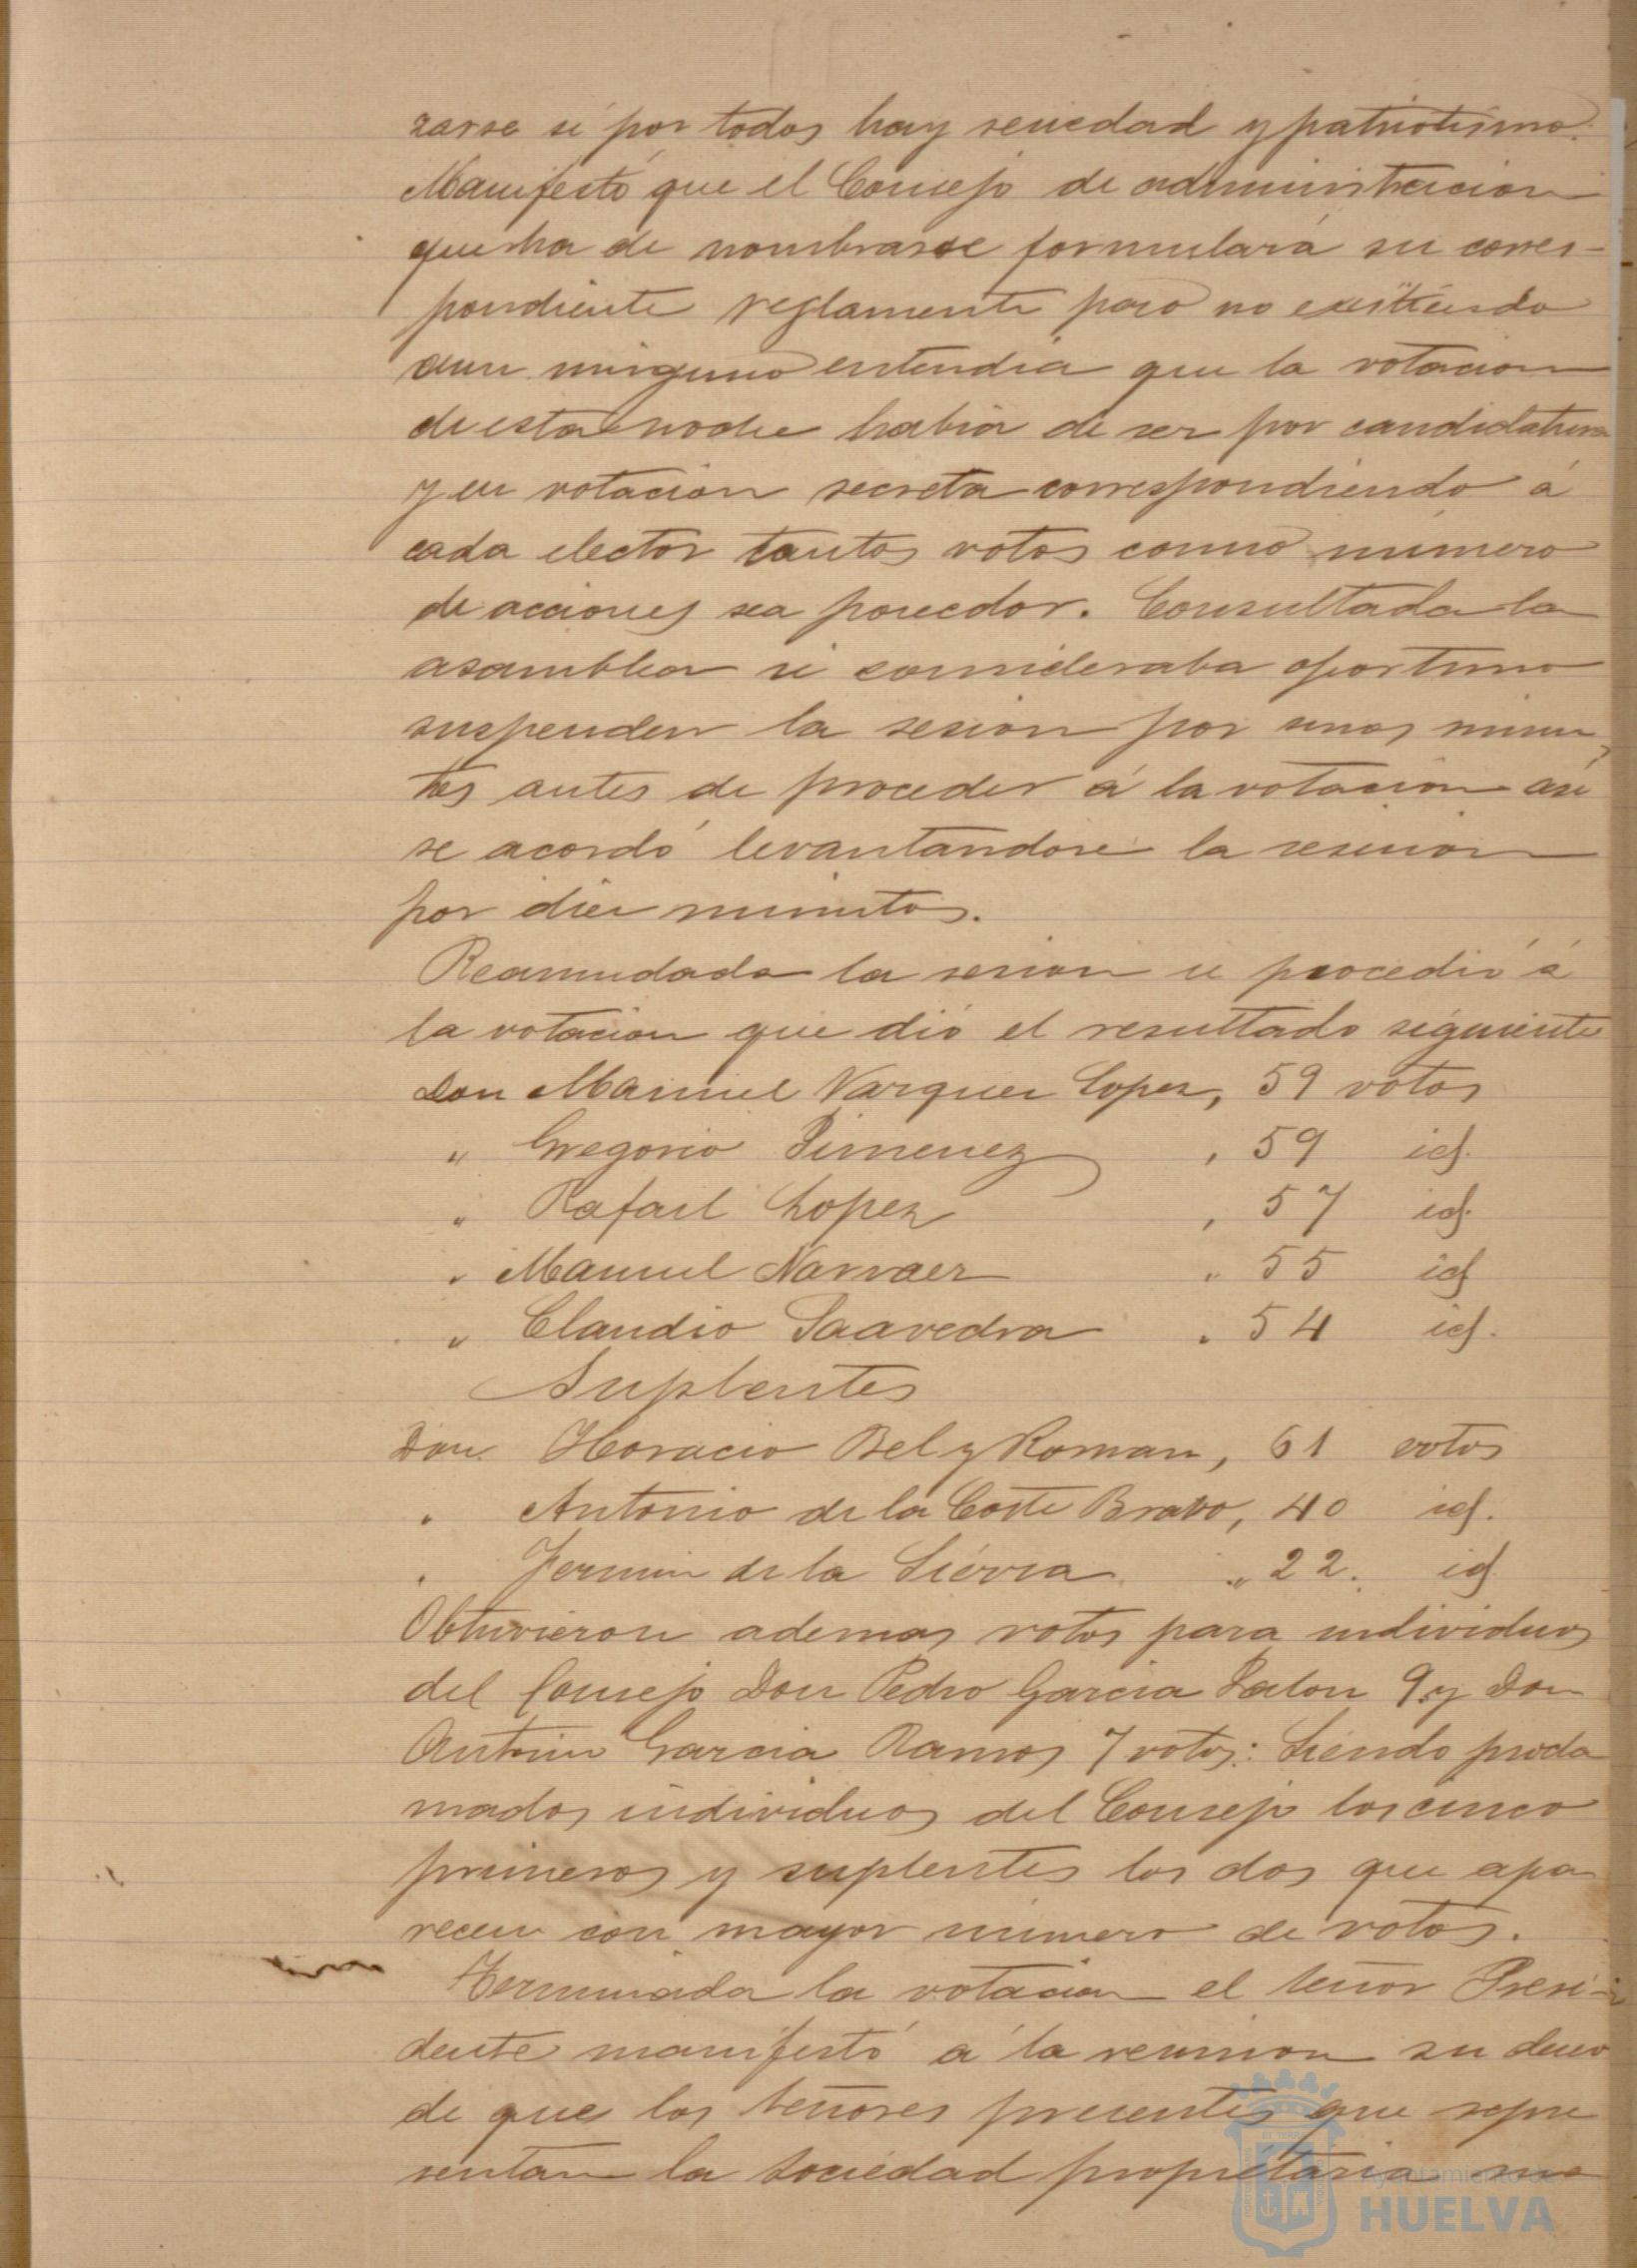 zarse si por todos hay seriedad y patriotismo.
Manifestó que el Consejo de administracion
que ha de nombrarse formulará su corres-
pondiente reglamento pero no existiendo
aun ninguno entendia que la votacion
de esta noche habia de ser por candidatura
y en votacion secreta correspondiendo á
cada elector tantos votos como número
de acciones sea poseedor. Consultada la
asamblea si consideraba oportuno
suspender la sesion por unos minu
tos antes de proceder á la votacion asi
se acordó levantandose la sesion
por diez minutos.
Reanudada la sesion se procedió á
la votacion que dió el resultado siguiente
Don Manuel Vazquez Lopez, 59 votos
" Gregorio Jimenez , 59 id.
" Rafael Lopez , 57 id.
" Manuel Narvaez " 55 id
" Claudio Saavedra " 54 id.
Suplentes
Don Horacio Bel y Roman, 61 votos
" Antonio de la Corte Bravo, 40 id.
" Fermin de la Sierra " 22. id
Obtuvieron ademas votos para individuos
del Consejo Don Pedro Garcia Jalon 9 y Don
Antonio Garcia Ramos 7 votos: Siendo procla
mados individuos del Consejo los cinco
primeros y suplentes los dos que apa
recen con mayor número de votos.
Terminada la votacion el Señor Presi-
dente manifestó á la reunion su deseo
de que los Señores presentes que repre
sentan la Sociedad propietaria
Ayuntamiento de
HUELVA